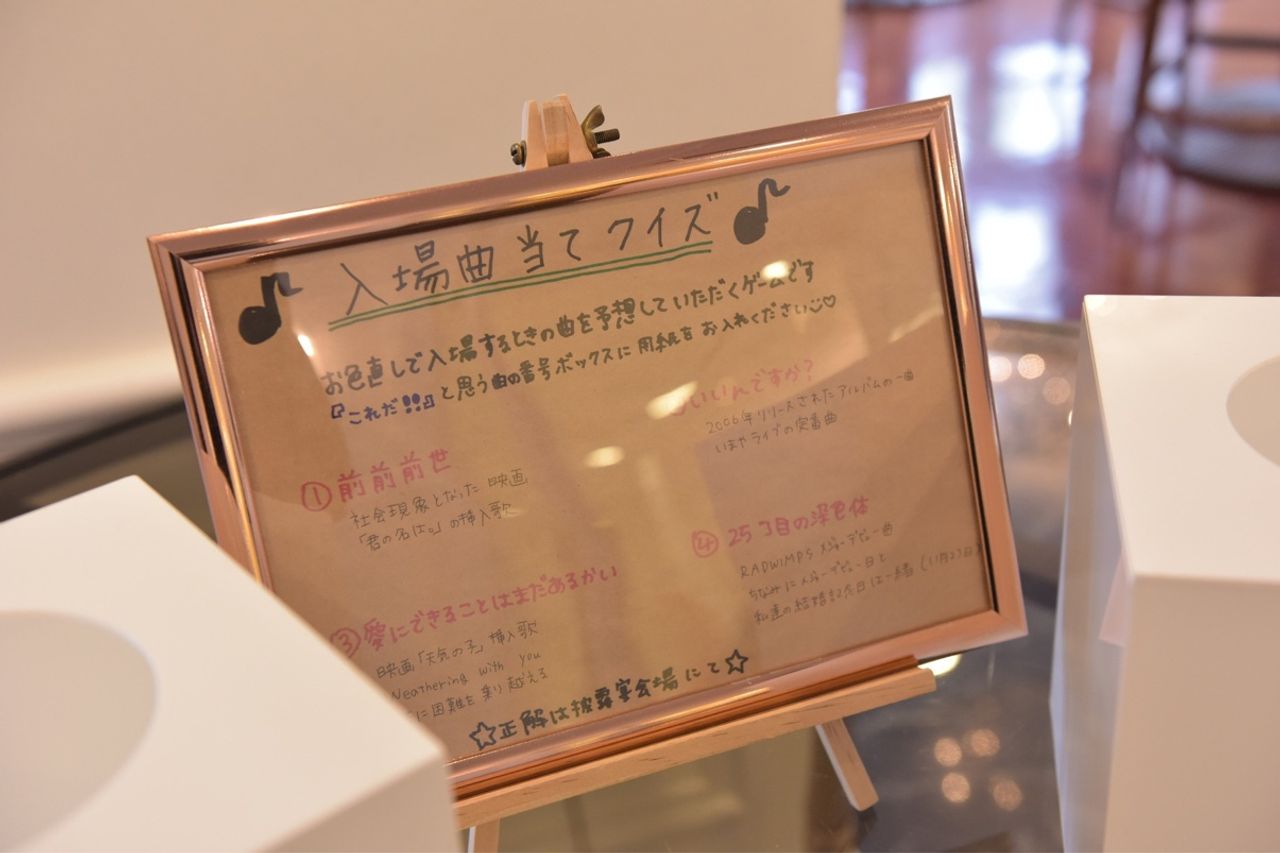 入場曲当てクイズ
お色直しで入場するときの曲を予想していただくゲームです
『これだ!!』と思う曲の番号ボックスに用紙をお入れください♡
① 前前前世
社会現象となった映画
「君の名は。」の挿入歌
いいんですか?
2006年リリースされたアルバムの一曲
いまやライブの定番曲
③ 愛にできることはまだあるかい
映画「天気の子」挿入歌
Weathering with you
に困難を乗り越える
④ 25コ目の染色体
RADWIMPS メジャーデビュー曲
ちなみにメジャーデビュー日と
私達の結婚記念日は一緒(11月23日)
☆正解は披露宴会場にて☆